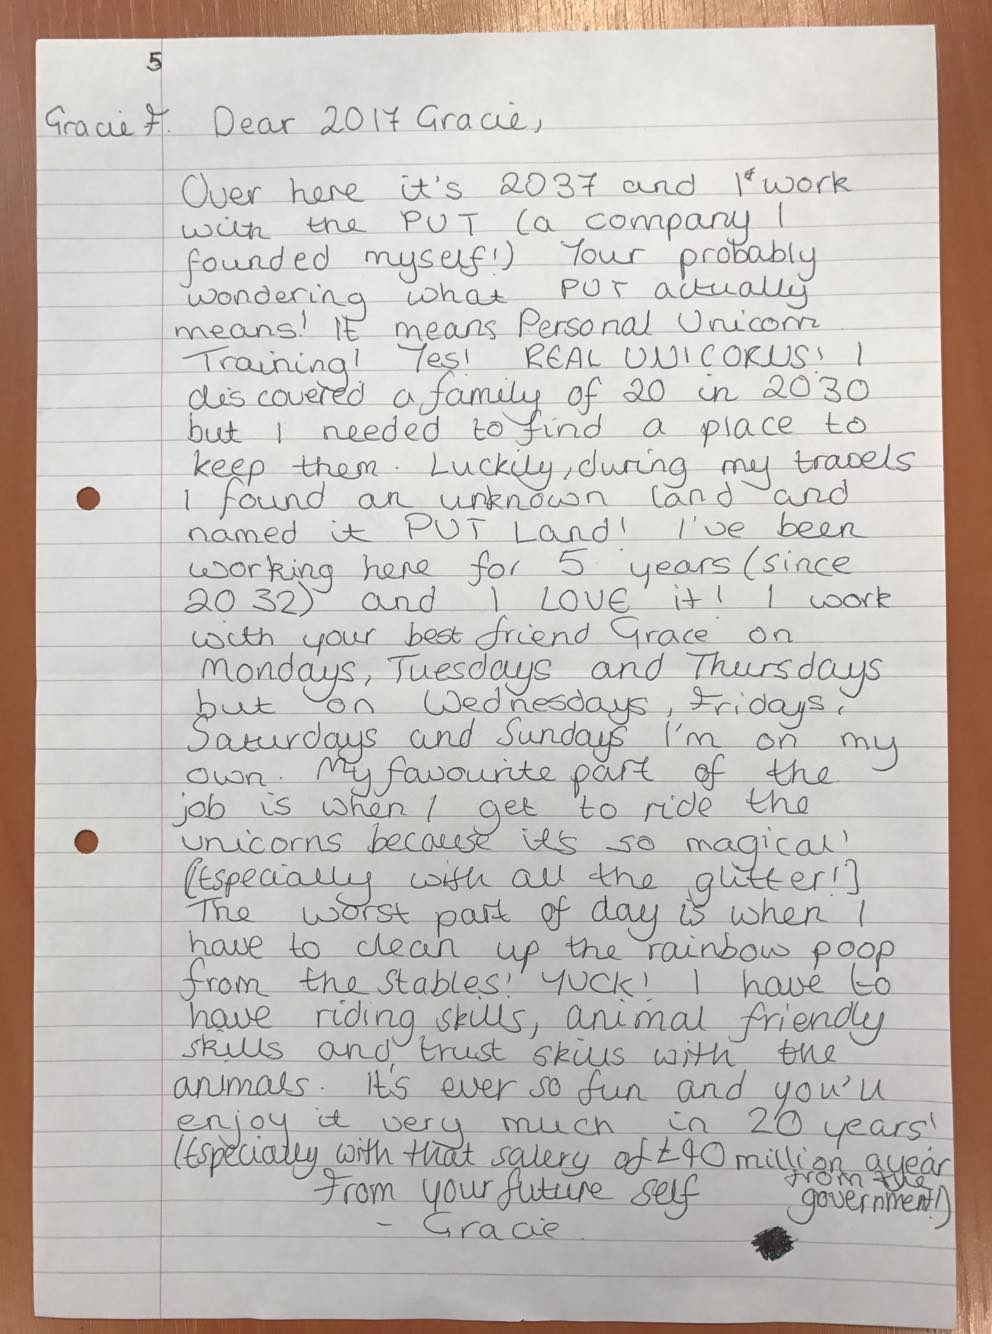 5
Gracie F. Dear 2017 Gracie,
Over here it's 2037 and I work
with the PUT (a company I
founded myself!) Your probably
wondering what PUT actually
means! It means Personal Unicorn
Training! Yes! REAL UNICORNS! I
discovered a family of 20 in 2030
but I needed to find a place to
keep them. Luckily, during my travels
I found an unknown land and
named it PUT Land! I've been
working here for 5 years (since
2032) and I LOVE it! I work
with your best friend Grace on
Mondays, Tuesdays and Thursdays
but on Wednesdays, Fridays,
Saturdays and Sundays I'm on my
own. My favourite part of the
job is when I get to ride the
unicorns because it's so magical!
(Especially with all the glitter!)
The worst part of day is when I
have to clean up the rainbow poop
from the stables! YUCK! I have to
have riding skills, animal friendly
skills and trust skills with the
animals. It's ever so fun and you'll
enjoy it very much in 20 years!
(Especially with that salery of £40 million a year
from the
government!)
From your future self
- Gracie